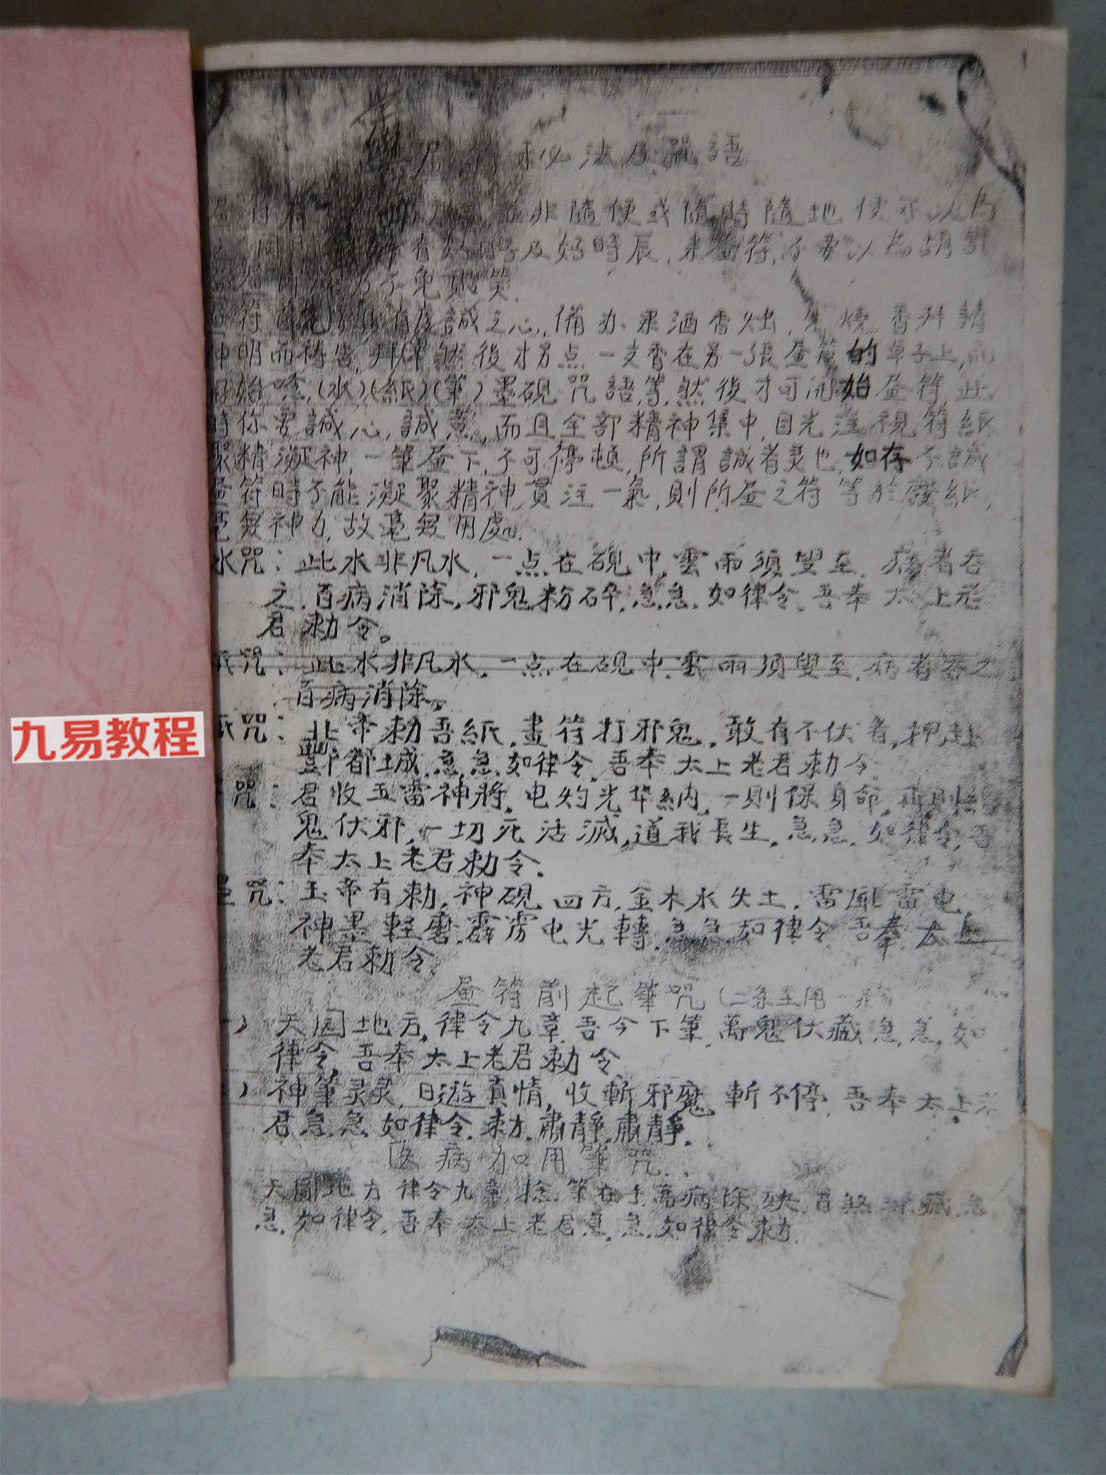 秘法及咒語
非隨便或隨時隨地 使 可以為
有好 及好時辰, 來畫符, 不要以為胡亂
不免貽笑.
符 有虔誠之心, 備办果酒香灶, 先燒香拜請
神明而禱告, 拜 然後才另点一支香在另一張畫 的草子上, 而
開始唸, (水)(紙)(筆)墨硯咒語等, 然後才可開始畫符, 此
時你要誠心, 誠意, 而且全部精神集中, 目光注視符紙
聚精凝神, 一筆畫下, 不可停頓, 所謂誠者灵也, 如存不誠
畫符時不能凝聚精神, 貫注一氣, 則所畫之符等於廢紙,
毫無神力, 故毫無用處.
水咒: 此水非凡水, 一点在硯中, 雲雨須叟至, 病者吞
之, 百病消除, 邪鬼粉碎, 急急, 如律令, 吾奉太上老
君勅令。
紙咒: 此水非凡水, 一点在硯中, 雲雨須叟至, 病者吞之
百病消除。
九易教程
紙咒: 北帝勅吾紙, 畫符打邪鬼, 敢有不伏者, 押赴
酆都城, 急, 急, 如律令, 吾奉太上老君勅令
咒: 君收五雷神將, 电灼光华納, 一則保身命, 再則
鬼伏邪, 一切死活滅, 道我長生, 急急, 如律令, 吾
奉太上老君勅令.
墨咒: 玉帝有勅, 神硯四方, 金木水火土, 雷 雷电
神墨輕磨, 霹雳电光轉, 急急如律令吾奉太上
老君勅令.
畫符前起筆咒 (二条
一) 天圓地方, 律令九章, 吾今下筆, 萬鬼伏藏急, 急, 如
律令, 吾奉太上老君勅令
) 神筆灵灵, 日遊真情, 收斬邪魔, 斬不停, 吾奉太上老
君急, 急, 如律令, 勅, 肅靜, 肅靜.
医病加用筆咒.
天圓地方律令九章, 捻筆在手, 萬病除殃, 百煞 藏, 急
急, 如律令, 吾奉太上老君急, 急, 如律令勅.